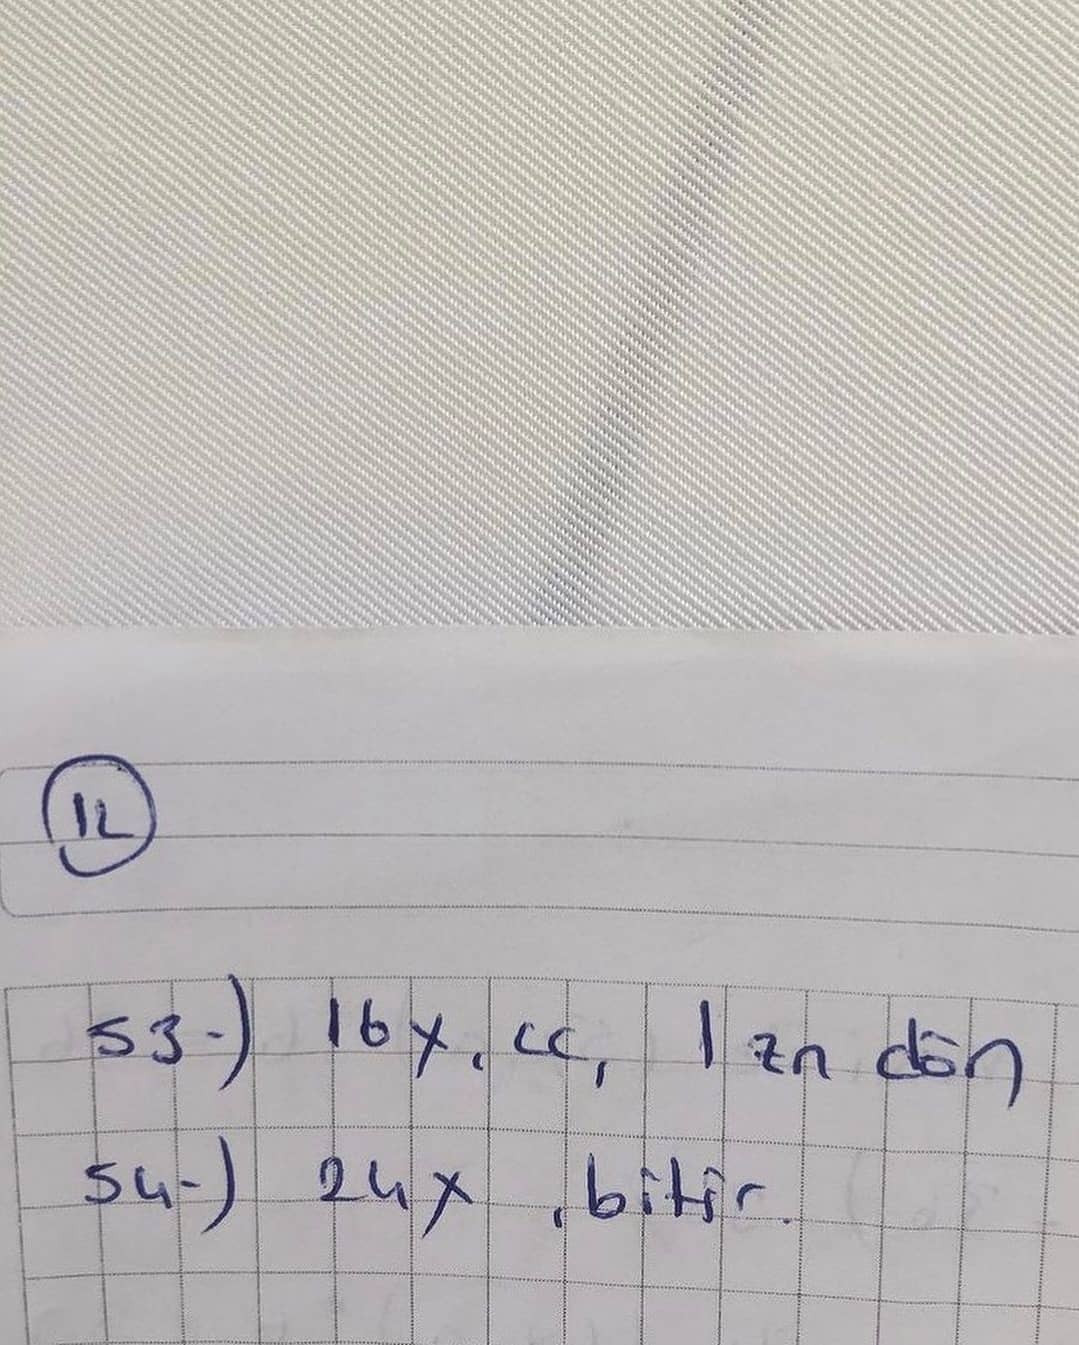 12
53-) 16x, cc, 1 zn dön
54-) 24x , bitir.